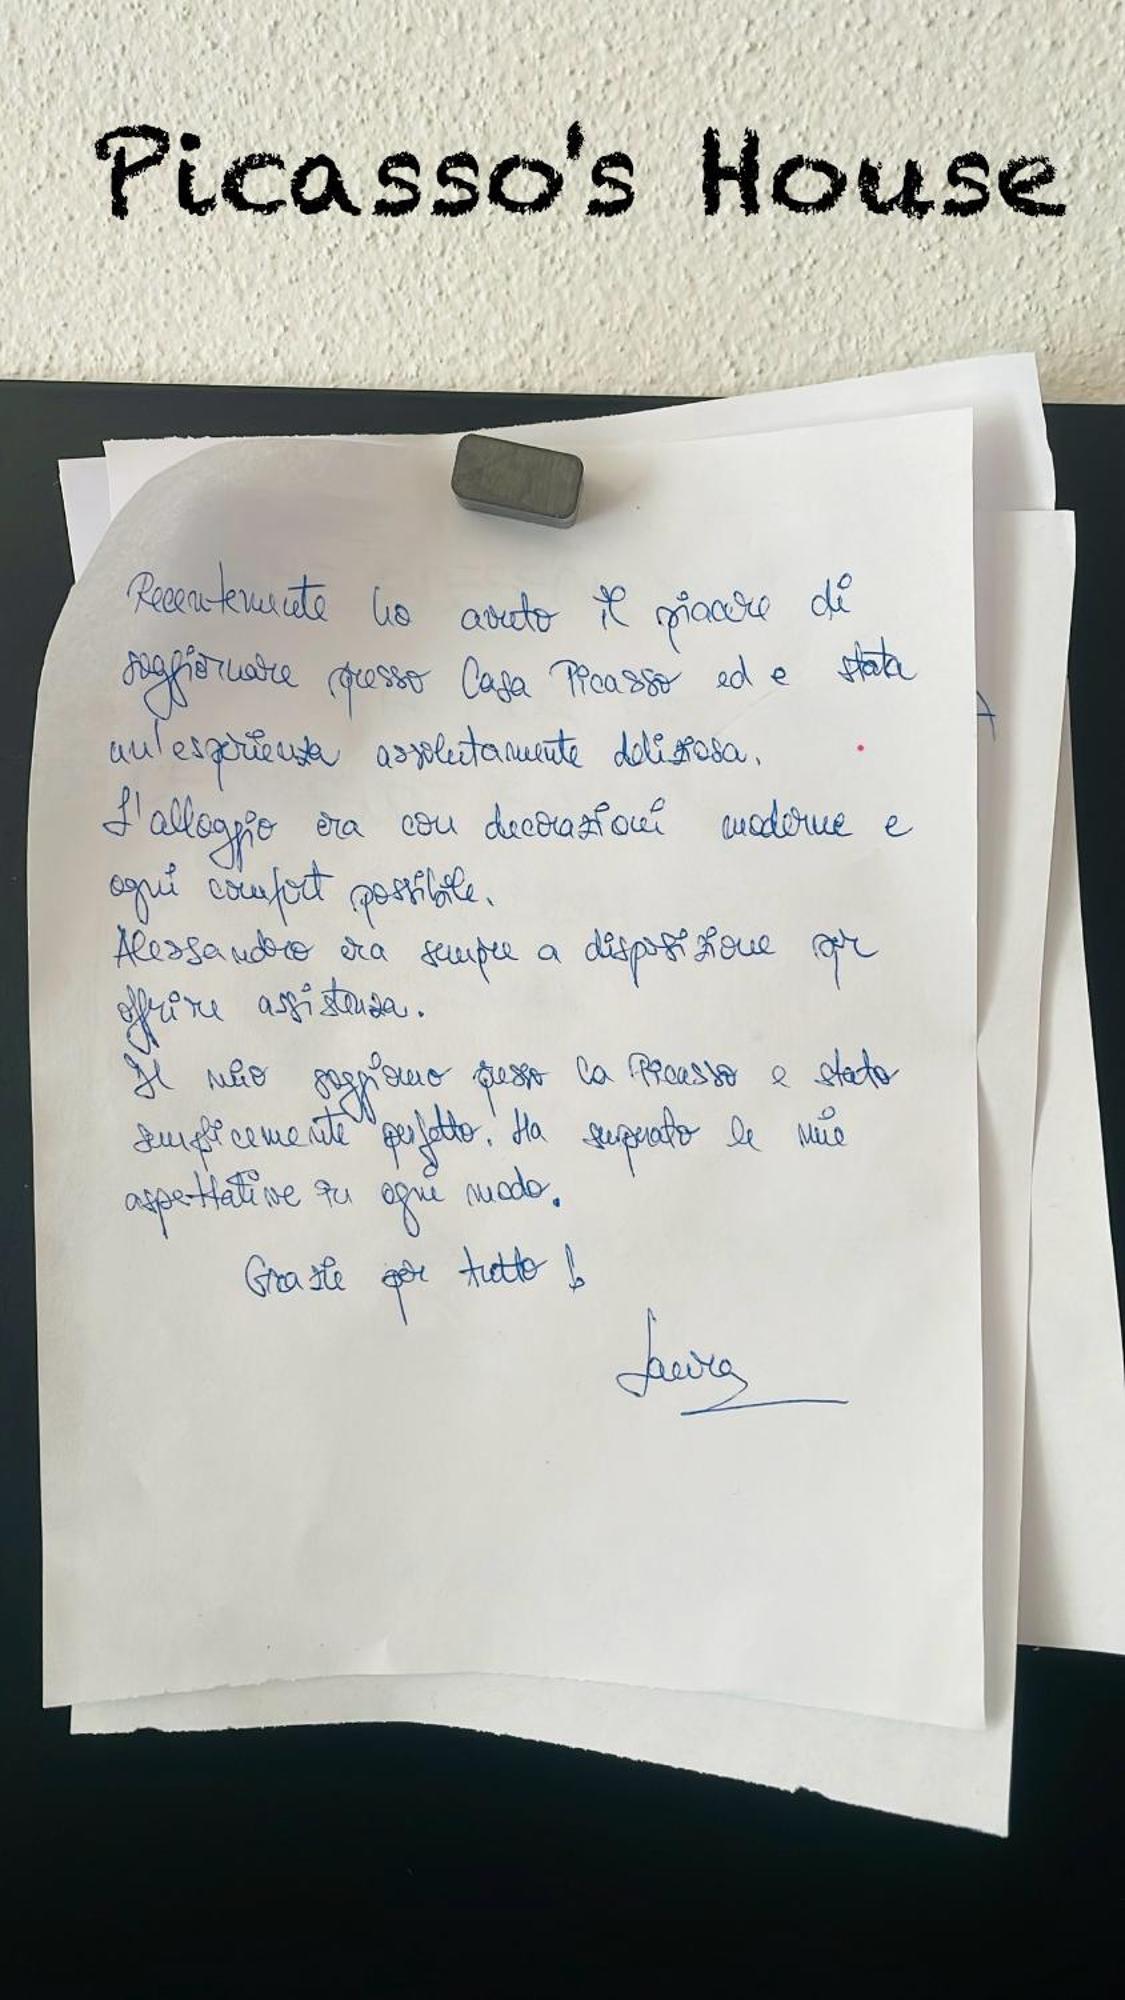 Picasso's House
Recentemente ho avuto il piacere di
soggiornare presso Casa Picasso ed e stata
un'esperienza assolutamente deliziosa.
L'alloggio era con decorazioni moderne e
ogni comfort possibile.
Alessandro era sempre a disposizione per
offrire assistenza.
Il mio soggiorno presso Ca Picasso e stato
semplicemente perfetto. Ha superato le mie
aspettative in ogni modo.
Grazie per tutto !
Laura